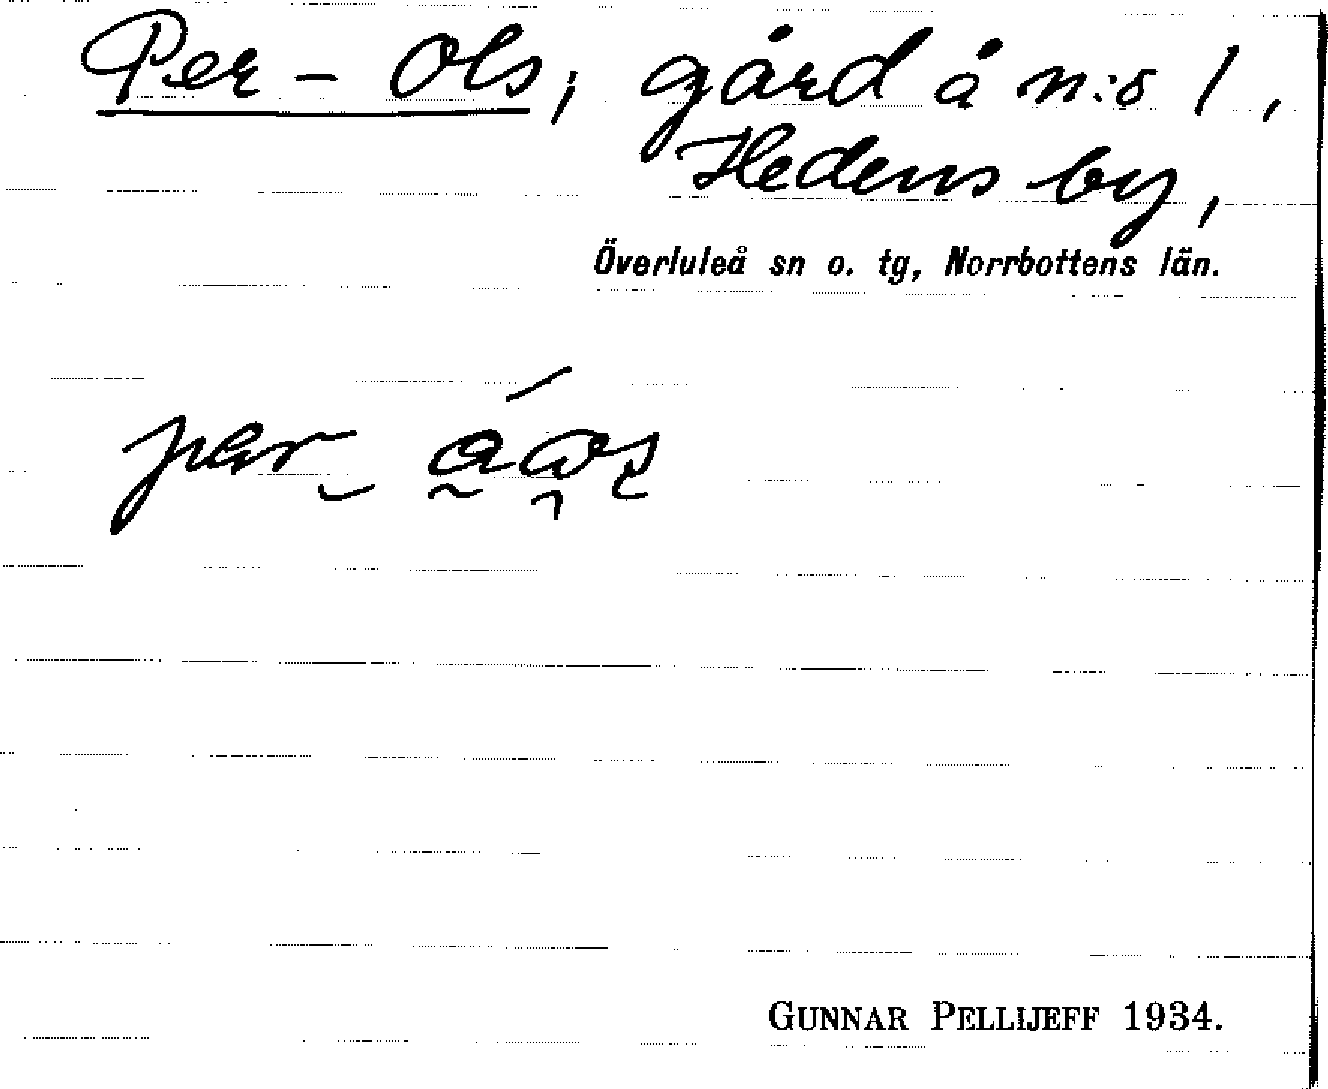 Per-Ols, gård å n:o 1,
Hedens by,
Överluleå sn o. tg, Norrbottens län.
GUNNAR PELLIJEFF 1934.